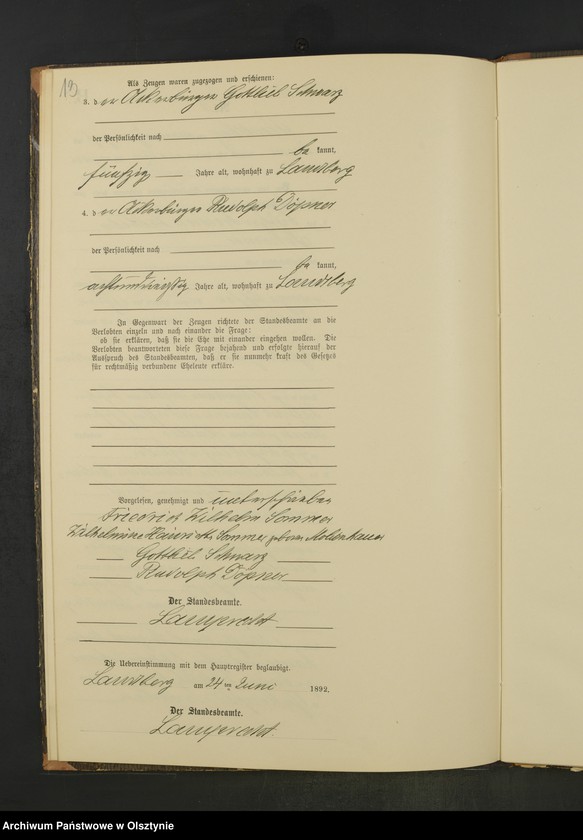 13
Als Zeugen waren zugezogen und erschienen:
3. der Ackerbürger Gottlieb Schwarz
der Persönlichkeit nach
be kannt,
fünfzig Jahre alt, wohnhaft zu Landsberg
4. der Ackerbürger Rudolph Döpner
der Persönlichkeit nach
be kannt,
achtundvierzig Jahre alt, wohnhaft zu Landsberg
In Gegenwart der Zeugen richtete der Standesbeamte an die
Verlobten einzeln und nach einander die Frage:
ob sie erklären, daß sie die Ehe mit einander eingehen wollen. Die
Verlobten beantworteten diese Frage bejahend und erfolgte hierauf der
Ausspruch des Standesbeamten, daß er sie nunmehr kraft des Gesetzes
für rechtmäßig verbundene Eheleute erkläre.
Vorgelesen, genehmigt und unterschrieben
Friedrich Wilhelm Sommer
Wilhelmine Sommer geborne
Gottlieb Schwarz
Rudolph Döpner
Der Standesbeamte.
Lamprecht
Die Uebereinstimmung mit dem Hauptregister beglaubigt.
Landsberg am 24ten Juni 1892.
Der Standesbeamte.
Lamprecht.
Archiwum Państwowe w Olsztynie